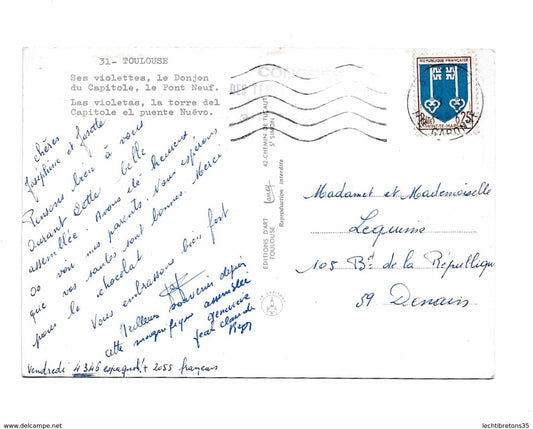 31- TOULOUSE
Ses violettes, le Donjon
du Capitole, le Pont Neuf.
Las violetas, la torre del
Capitole el puente Nuévo.
chères
Joséphine et
Pensons bien à vous
durant cette belle
assemblée. Avons été heureux
de voir mes parents. Nous espérons
que vos santés sont bonnes. Merci
pour le chocolat
Vous embrassons bien fort
Meilleur souvenir depuis
cette magnifique assemblée
Geneviève
Jean Claude
Vendredi 4346 espagnols + 2055 français
EDITIONS D'ART
TOULOUSE
42, CHEMIN DE
ST SIMON
Reproduction interdite
REPUBLIQUE FRANÇAISE
0,25
MONT-DE-MARSAN
GARONNE
Madame et Mademoiselle
Lequime
105 Bd de la République
59 Denain
www.delcampe.net
lechtibretons35